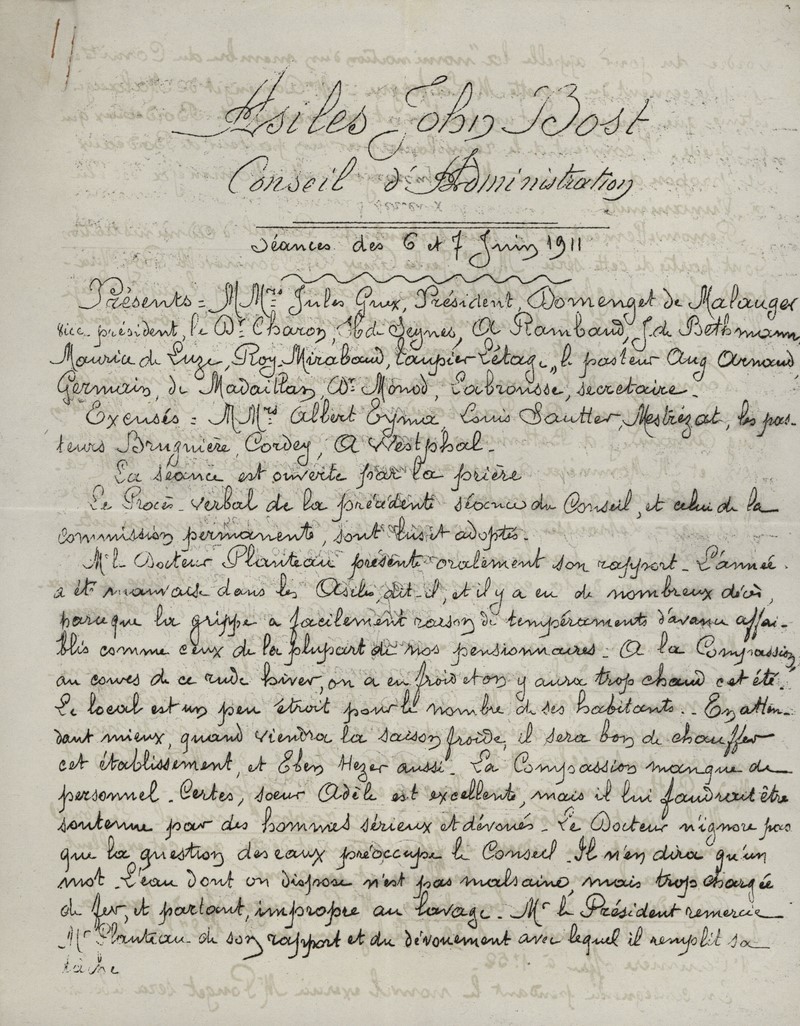 Asiles John Bost
Conseil d'Administration
Séances des 6 et 7 Juin 1911
Présents = MMrs Jules Grux, Président, Domenget de Malauger
vice-président, le Dr Charon, H. de Seynes, A Rambaud, J. de Bethmann
Maurice de Luze, Roy, Mirabaud, Laupier Létage, le pasteur Aug Arnaud
Germain, de Madaillan, Dr Monod, Labrousse, secrétaire.
Excusés = MMrs Albert Eyma, Louis Sautter, Mestrézat, les pas-
teurs Bruguière, Cordey, A Westphal.
La séance est ouverte par la prière
Le Procès-verbal de la précédente séance du Conseil, et celui de la
commission permanente, sont lus et adoptés.
Mr le Docteur Planteau présente oralement son rapport. L'année
a été mauvaise dans les Asiles, dit-il, et il y a eu de nombreux décès,
parce que la grippe a facilement raison de tempéraments d'avance affai-
blis comme ceux de la plupart de nos pensionnaires. A la Compassion,
au cours de ce rude hiver, on a eu froid et on y aura trop chaud cet été.
Le local est un peu étroit pour le nombre de ses habitants. En atten-
dant mieux, quand viendra la saison froide, il sera bon de chauffer
cet établissement, et Eben Hezer aussi. La Compassion manque de
personnel. Certes, soeur Adèle est excellente, mais il lui faudrait être
soutenue par des hommes sérieux et dévoués. Le Docteur n'ignore pas
que la question des eaux préoccupe le Conseil. Il n'en dira qu'un
mot. L'eau dont on dispose n'est pas malsaine, mais trop chargée
de fer, et partant, impropre au lavage. Mr le Président remercie
Mr Planteau de son rapport et du dévouement avec lequel il remplit sa
tâche